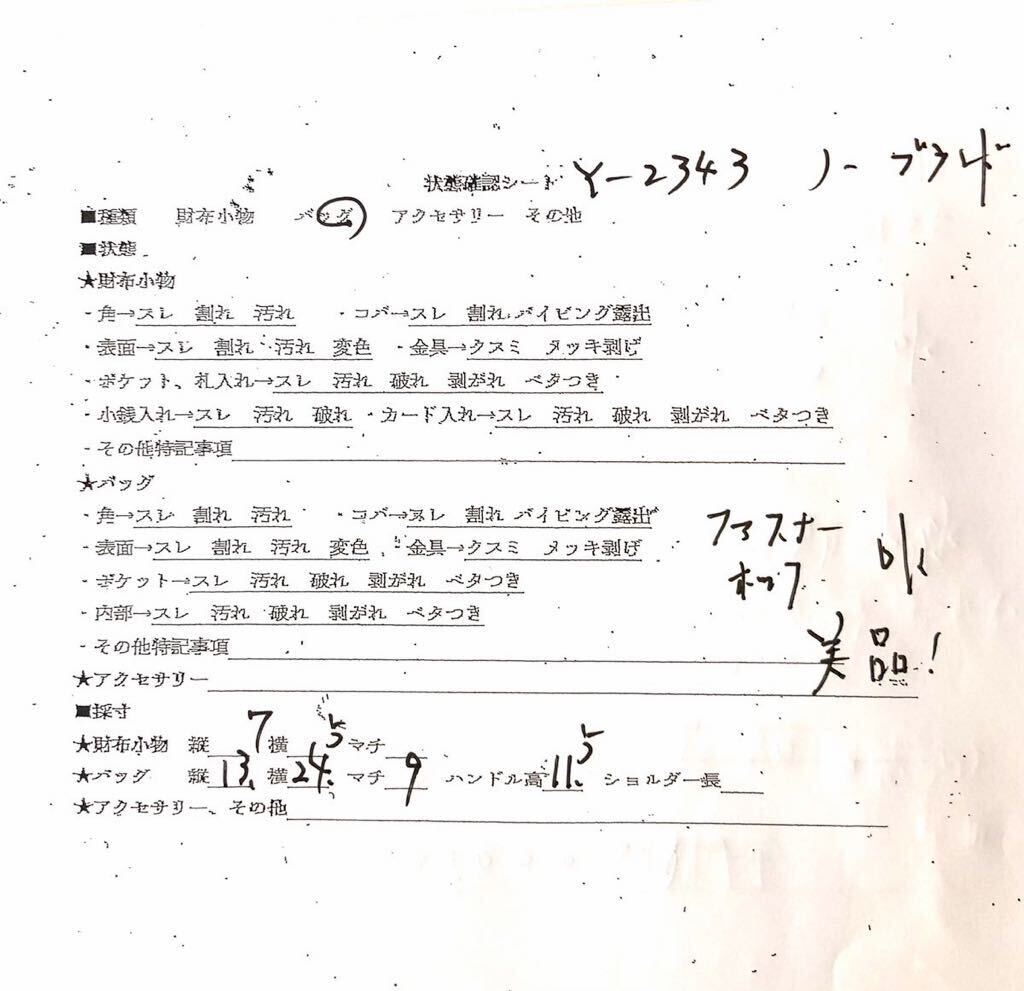 状態確認シート Y-2343 ノーブランド
■種類 財布小物 バッグ アクセサリー その他
■状態
★財布小物
・角→スレ 割れ 汚れ ・コバ→スレ 割れ パイピング露出
・表面→スレ 割れ 汚れ 変色 ・金具→クスミ メッキ剥げ
・ポケット、札入れ→スレ 汚れ 破れ 剥がれ ベタつき
・小銭入れ→スレ 汚れ 破れ ・カード入れ→スレ 汚れ 破れ 剥がれ ベタつき
・その他特記事項
★バッグ
・角→スレ 割れ 汚れ ・コバ→スレ 割れ パイピング露出
・表面→スレ 割れ 汚れ 変色 ・金具→クスミ メッキ剥げ
ファスナー
ホック
ok
・ポケット→スレ 汚れ 破れ 剥がれ ベタつき
・内部→スレ 汚れ 破れ 剥がれ ベタつき
・その他特記事項 美品!
★アクセサリー
■採寸
★財布小物 縦 横 マチ
★バッグ 縦13.7 横24.5 マチ9 ハンドル高11.5 ショルダー長
★アクセサリー、その他